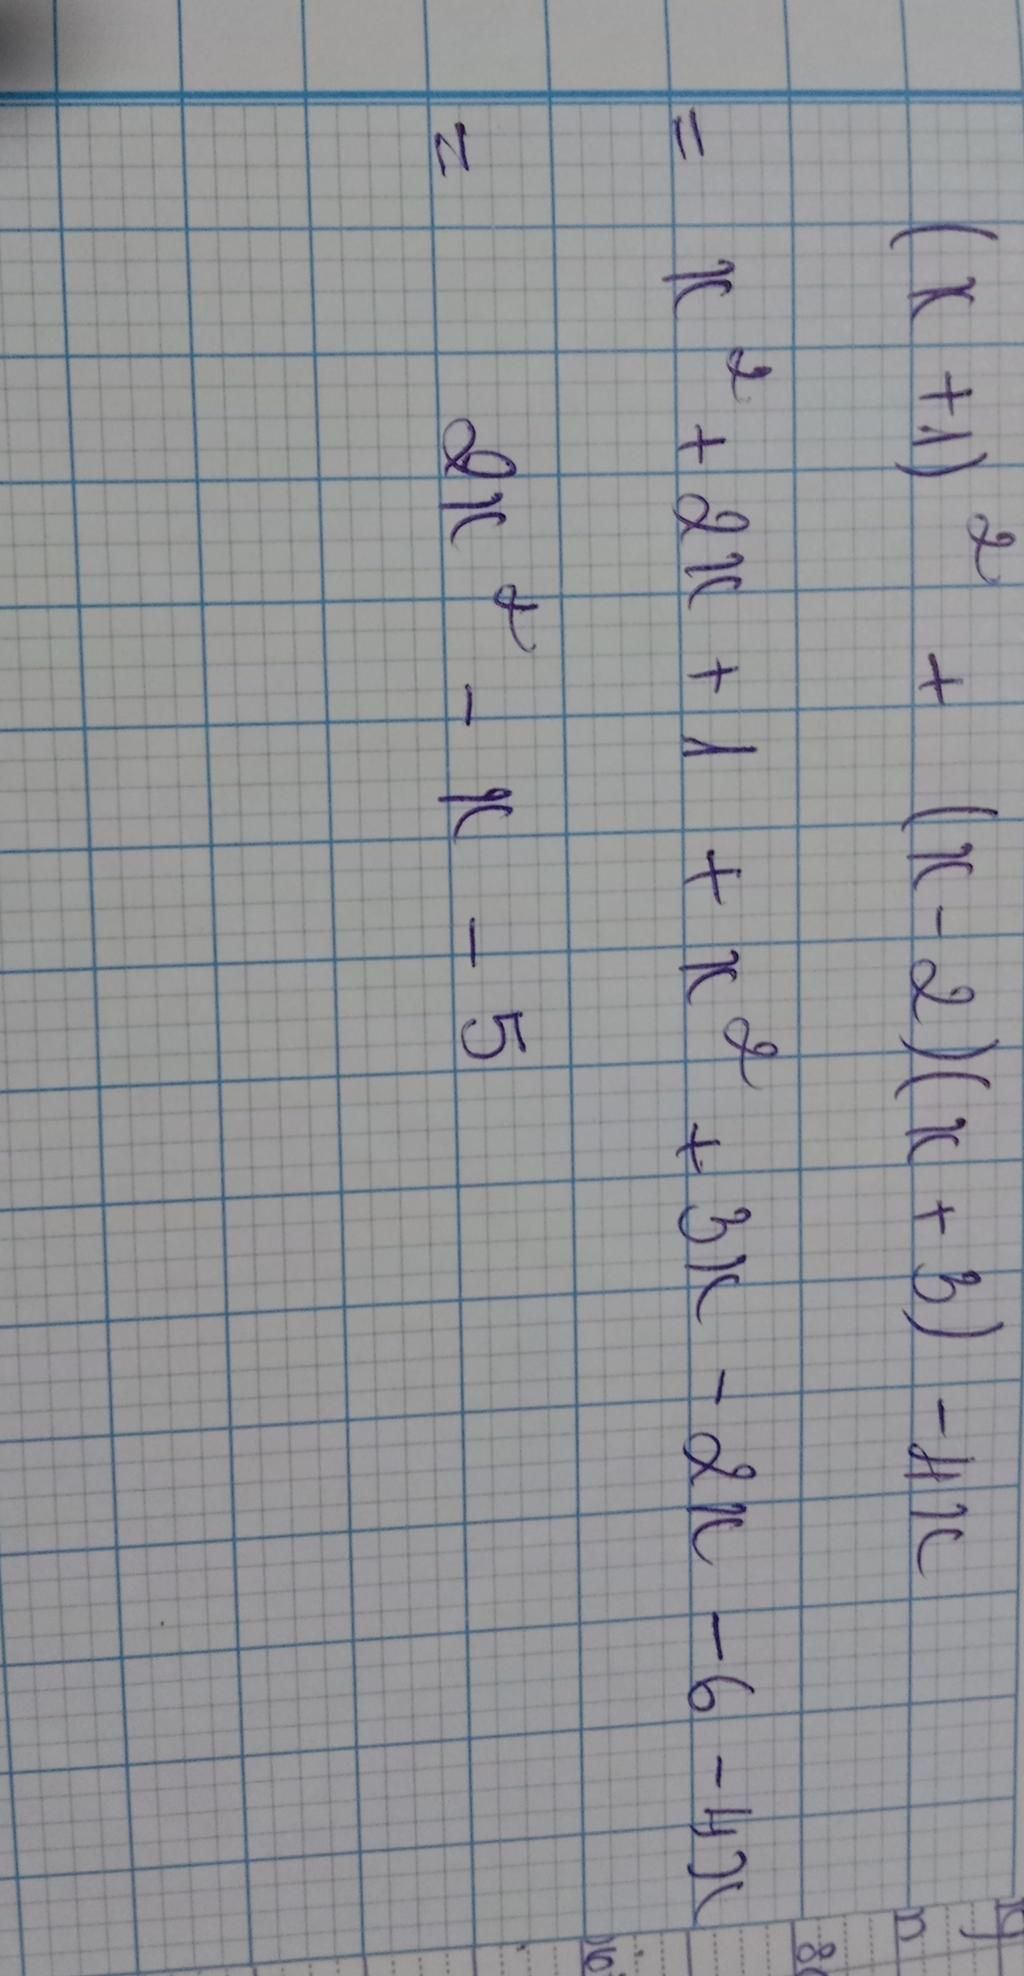 (x+1)² + (x-2)(x+3) -4x
= x² + 2x + 1 + x² + 3x - 2x - 6 - 4x
= 2x² - x - 5